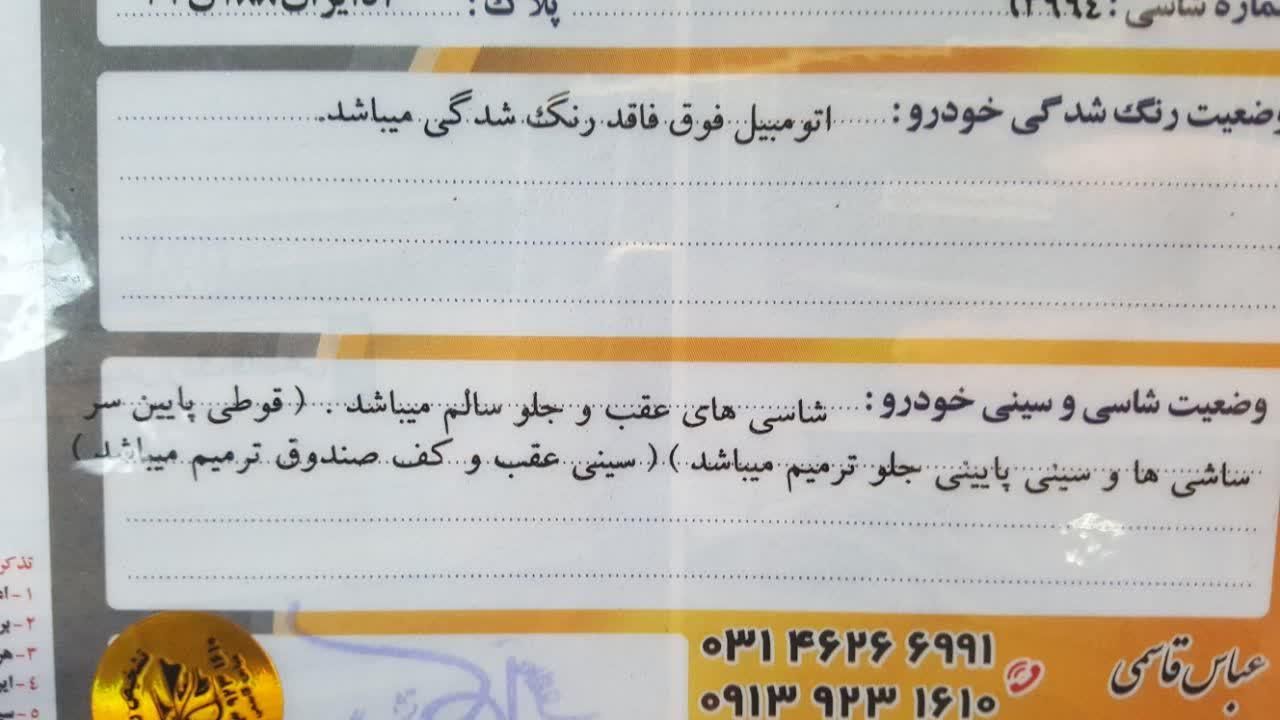 شماره شاسی : ۱۲۹۹۴ پلاک :
وضعیت رنگ شدگی خودرو : اتومبیل فوق فاقد رنگ شدگی میباشد.
وضعیت شاسی و سینی خودرو : شاسی های عقب و جلو سالم میباشد . ( قوطی پایین سر
ساشی ها و سینی پایینی جلو ترمیم میباشد )( سینی عقب و کف صندوق ترمیم میباشد )
تذکر
۱-
۲-
۳-
۴-
۵-
۰۳۱ ۴۶۲۶ ۶۹۹۱
۰۹۱۳ ۹۲۳ ۱۶۱۰
عباس قاسمی